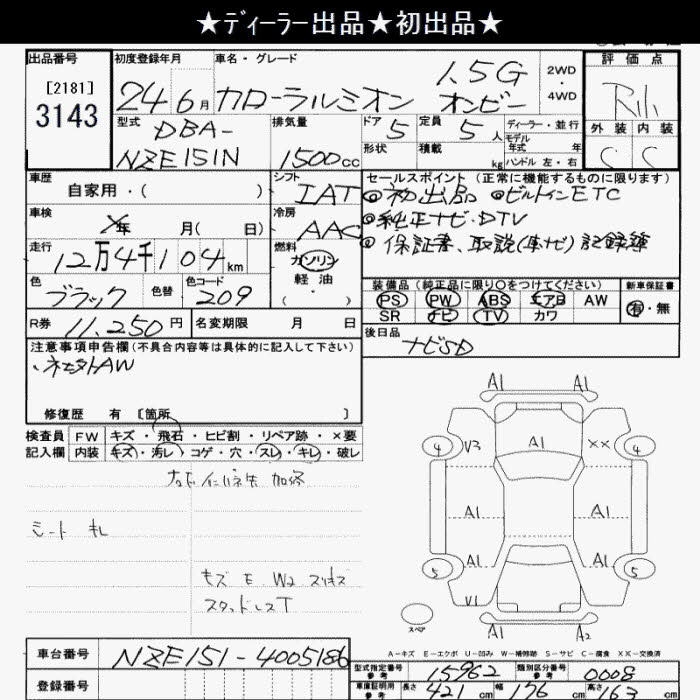 ★ディーラー出品★初出品★
出品番号
[2181]
3143
初度登録年月
24 6月
車名・グレード
カローラルミオン
1.5G
オンビー
2WD
・
4WD
評価点
型式
DBA-
NZE151N
排気量
1500cc
ドア 5
定員 5人
形状
積載 kg
ディーラー・並行
モデル年式 年
ハンドル 左・右
外装 内装
C C
車歴
自家用・( )
シフト
IAT
セールスポイント (正常に機能するものに限ります)
◎初出品 ◎ビルトインETC
◎純正ナビ・DTV
◎保証書、取説(車ナビ)記録簿
車検
年 月( 日)
冷房
AAC
走行
12万4千104km
燃料
ガソリン
軽油
・( )
色
ブラック
色替
色コード
209
装備品 (純正品に限り○をつけてください)
新車保証書
PS PW ABS エアB AW
SR ナビ TV カワ
有・無
R券 11,250円
名変期限 月 日
後日品
ナビSD
注意事項申告欄 (不具合内容等は具体的に記入して下さい)
修復歴 有 [箇所 ]
検査員記入欄
FW キズ・飛石・ヒビ割・リペア跡・×要
内装 キズ・汚レ・コゲ・穴・スレ・キレ・破レ
シート キレ
キズ E W2 スリキズ
スタッドレスT
A1 A1
4 V3 A1 ×× 4
A1 A1
5 A1 A1 5
V1
A1 A2
スペア
A-キズ E-エクボ U-凹み W-補修跡 S-サビ C-腐食 XX-交換済
車台番号 NZE151-4005186
登録番号
型式指定番号 参考 15962
類別区分番号 参考 0008
車庫証明用 参考 長さ 421cm 幅 176cm 高さ 163cm